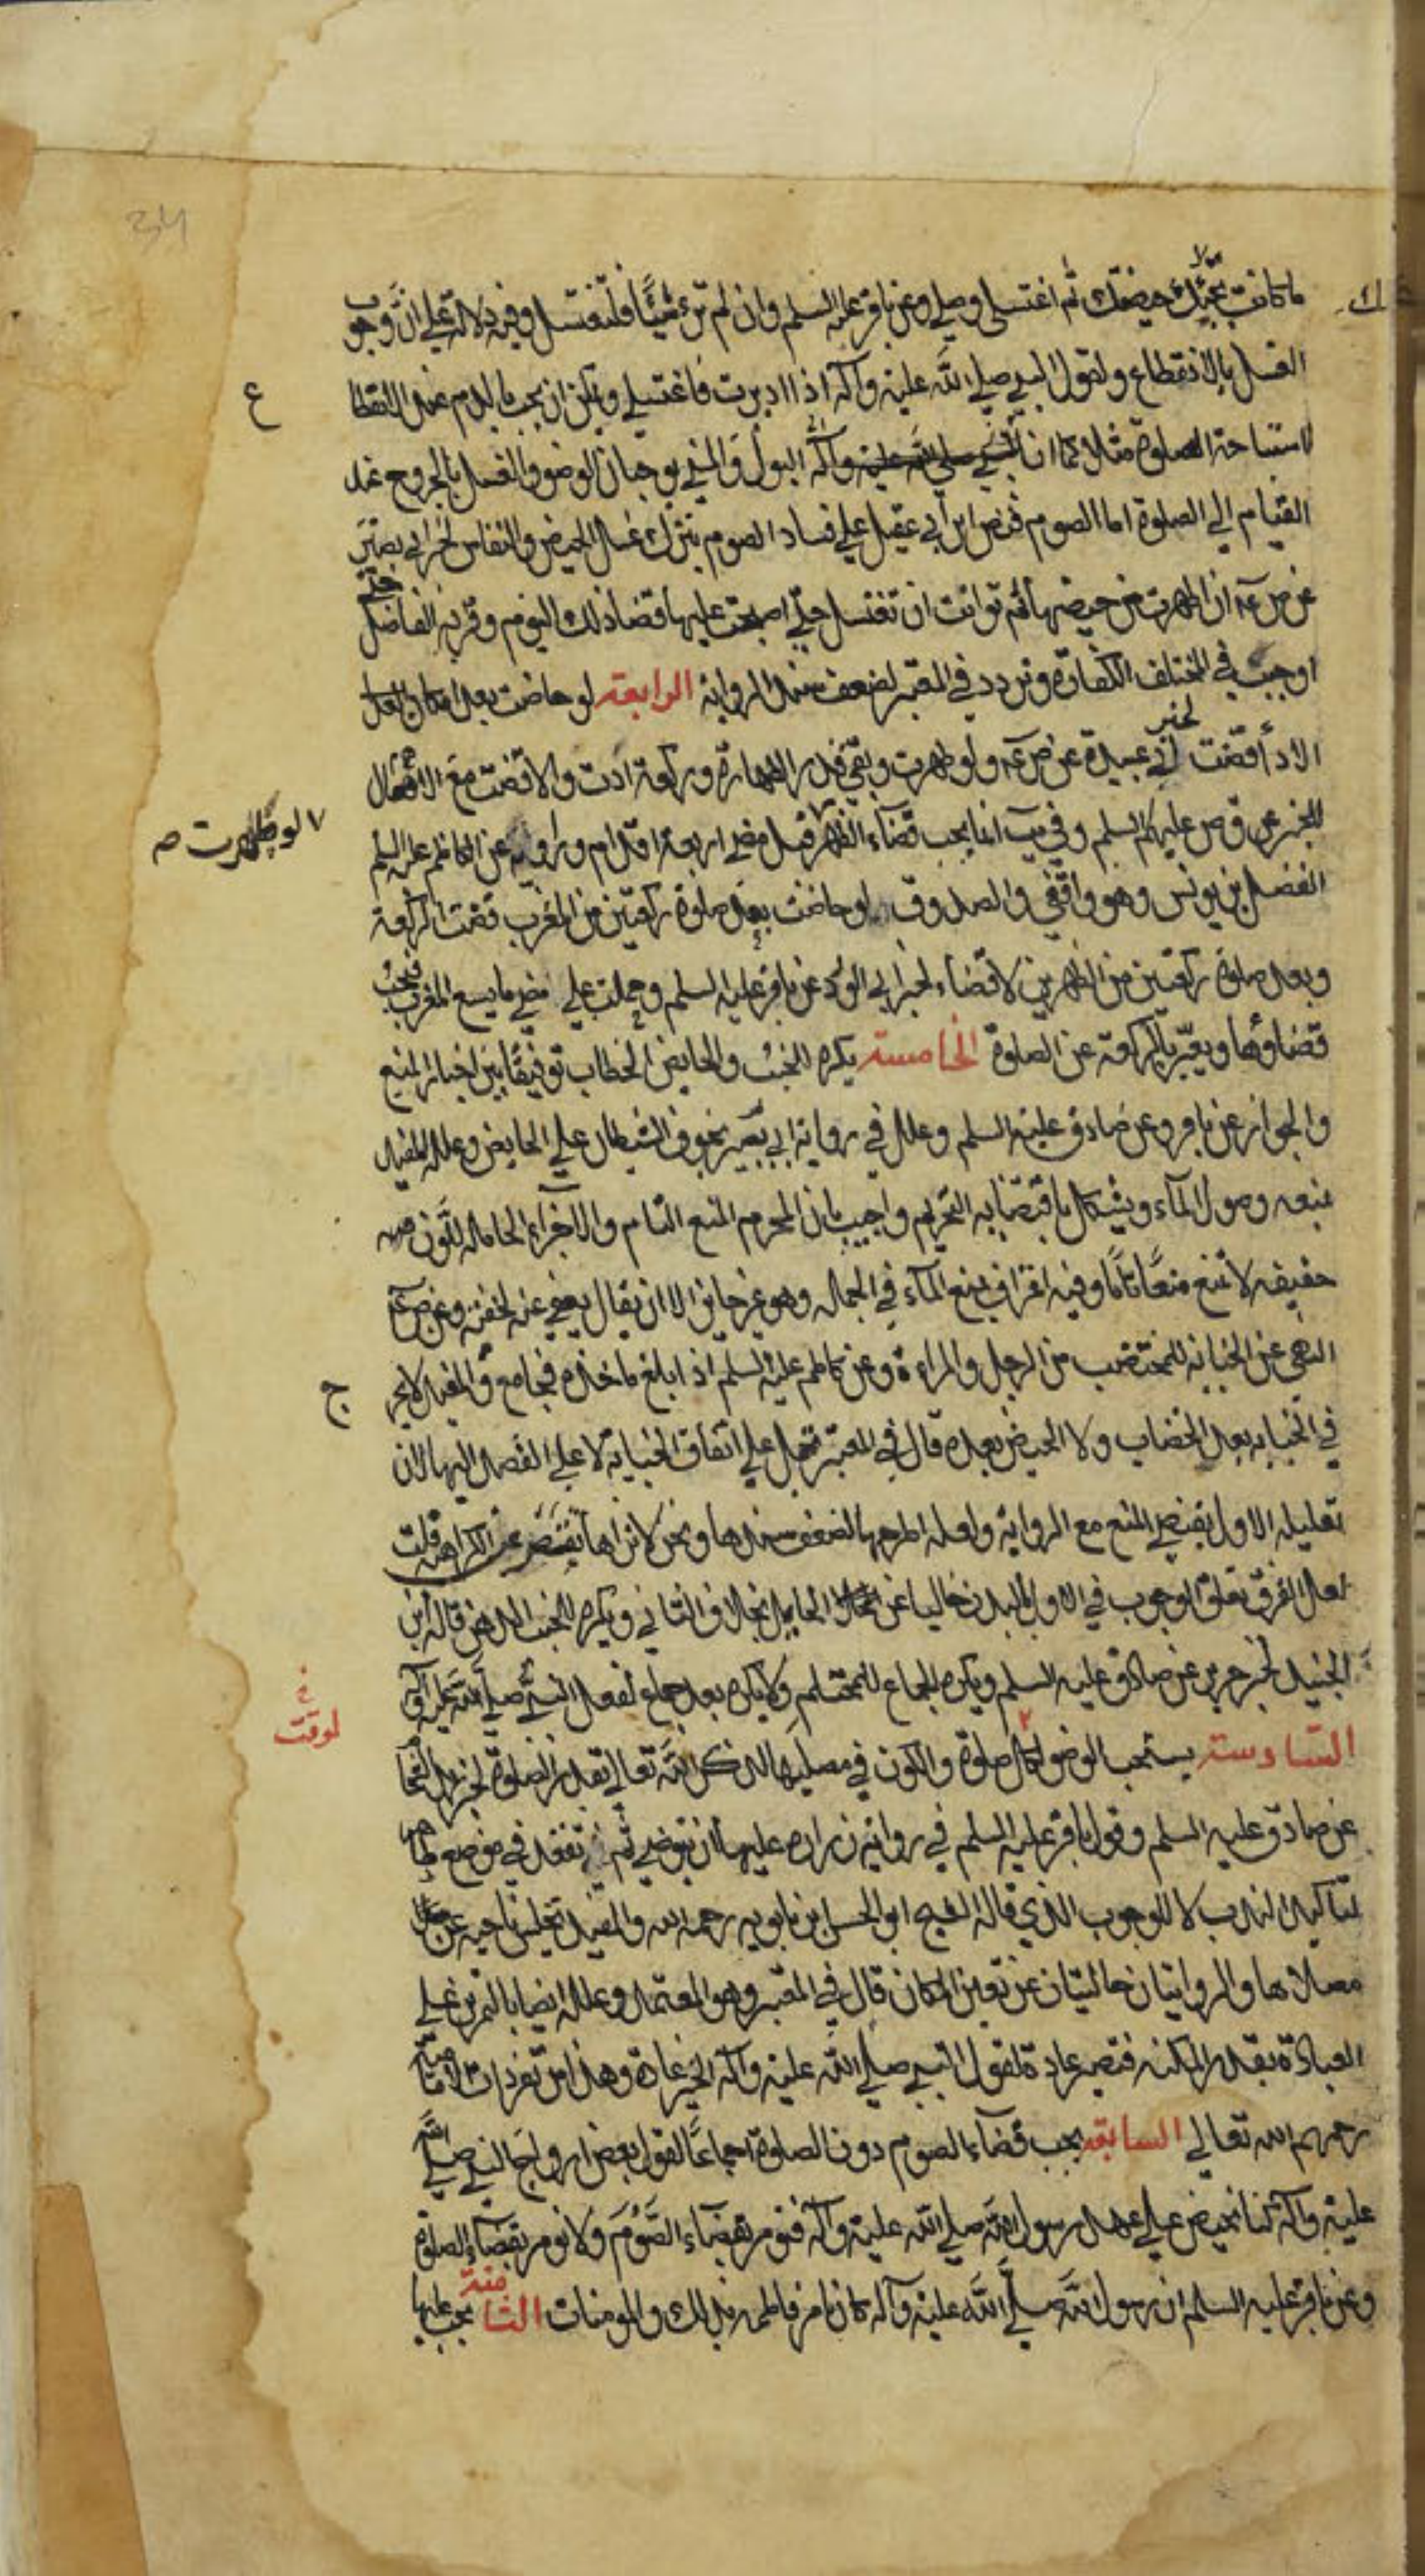 34
ما كانت تحبسك حيضتك ثم اغتسلي وصلي وعن باقر عليه السلم وان لم تر شيئا فلتغتسل وفيه دلالة علي ان وجوب
الغسل بالانقطاع ولقول النبي صلي الله عليه وآله اذا ادبرت فاغتسلي ويمكن ان يجب بالدم عند الانقطاع
لاستباحة الصلوة مثلا كما ان النبي صلي الله عليه وآله البول والمني يوجبان الوضو والغسل بالخروج عند
القيام الي الصلوة اما الصوم فنص ابن أبي عقيل علي فساد الصوم بترك غسل الحيض والنفاس لخبر ابي بصير
عن ص ع ان طهرت من حيضها ثم توانت ان تغتسل حتي اصبحت عليها قضا ذلك اليوم وقربه الفاضل حتي
اوجب في المختلف الكفارة وتردد في المعتبر لضعف سند الرواية الرابعة لو حاضت بعد امكان فعل
الادأ قضت لخبر ابي عبيدة عن ص ع ولو طهرت وبقي قدر الطهارة وركعة ادت والا قضت مع الاهمال
للخبر عن ق ص عليهم السلم وفي يب انما يجب قضآء الظهر لو طهرت قبل مضي اربعة اقدام ورواية عن الكاظم عليه السلم
الفضل بن يونس وهو واقفي والصدوق لو حاضت بعد صلوة ركعتين من المغرب قضت الركعة
وبعد صلوة ركعتين من الظهرين لا قضاء لخبر ابي الورد عن باقر عليه السلم وحملت علي مضي ما يسع المغرب فيجب
قضاؤها ويعبر بالركعة عن الصلوة الخامسة يكره للجنب والحايض الخضاب توفيقا بين اخبار المنع
والجواز عن باقر وعن صادق عليه السلم وعلل في رواية ابي بصير بخوف الشيطان علي الحايض وعلله المفيد
بمنعه وصول المآء ويشكل باقتضائه التحريم واجيب بان المحرم المنع التام والاجزاء الحاملة للون
خفيفة لا تمنع منعا تاما وفيه اعتراف بمنع المآء في الجملة وهو غير جايز الا ان يقال يعفي عنه لخفته وعن ص ع
النهي عن الجنابة للمختضب من الرجل والمراءة وعن كاظم عليه السلم اذا بلغ ماخذه فجامع والمفيد لا حرج
في الجنابة بعد الخضاب ولا الحيض بعده قال في المعتبر تحمل علي اتفاق الجنابة لا علي القصد اليها لان
تعليله الاول يقتضي المنع مع الرواية ولعله اطرحها لضعف سندها ونحن لا نراها تقتصر عن الكراهة قلت
لعل الفرق تعلق الوجوب في الاول بالبدن خاليا عن الحايل بخلاف الثاني ويكره للجنب الدهن قاله ابن
الجنيد لخبر حريز عن صادق عليه السلم ويكره الجماع للمحتلم ولا يكره بعد جماع لفعل النبي صلي الله عليه وآله
السادسة يستحب الوضو لوقت كل صلوة والكون في مصليها لذكر الله تعالي بقدر الصلوة لخبر زيد الشحام
عن صادق عليه السلم وقول باقر عليه السلم في رواية زراره عليها ان تتوضي ثم تقعد في موضع طاهر
لتأكيد الندب لا للوجوب الذي قاله الشيخ ابو الحسن بن بابويه رحمه الله والمفيد تجلس ناحية عن
مصلاها والروايتان خاليتان عن تعيين المكان قال في المعتبر وهو المعتمد وعلله ايضا بالتمرين علي
العبادة بقدر المكنة فتصير عادة لقول النبي صلي الله عليه وآله الخير عادة وهذا من تفردات الامامية
رحمهم الله تعالي السابعة يجب قضآء الصوم دون الصلوة اجماعا لقول بعض ازواج النبي صلي الله
عليه وآله كنا نحيض علي عهد رسول الله صلي الله عليه وآله فنومر بقضآء الصوم ولا نومر بقضآء الصلوة
وعن باقر عليه السلم ان رسول الله صلي الله عليه وآله كان يامر فاطمه بذلك والمومنات الثامنة يجب عليها